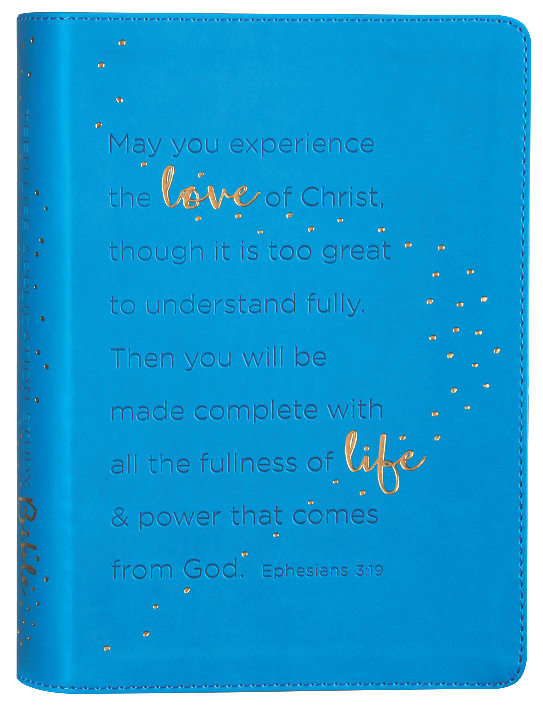 May you experience
the love of Christ,
though it is too great
to understand fully.
Then you will be
made complete with
all the fullness of life
& power that comes
from God. Ephesians 3:19
LIFE APPLICATION STUDY Bible